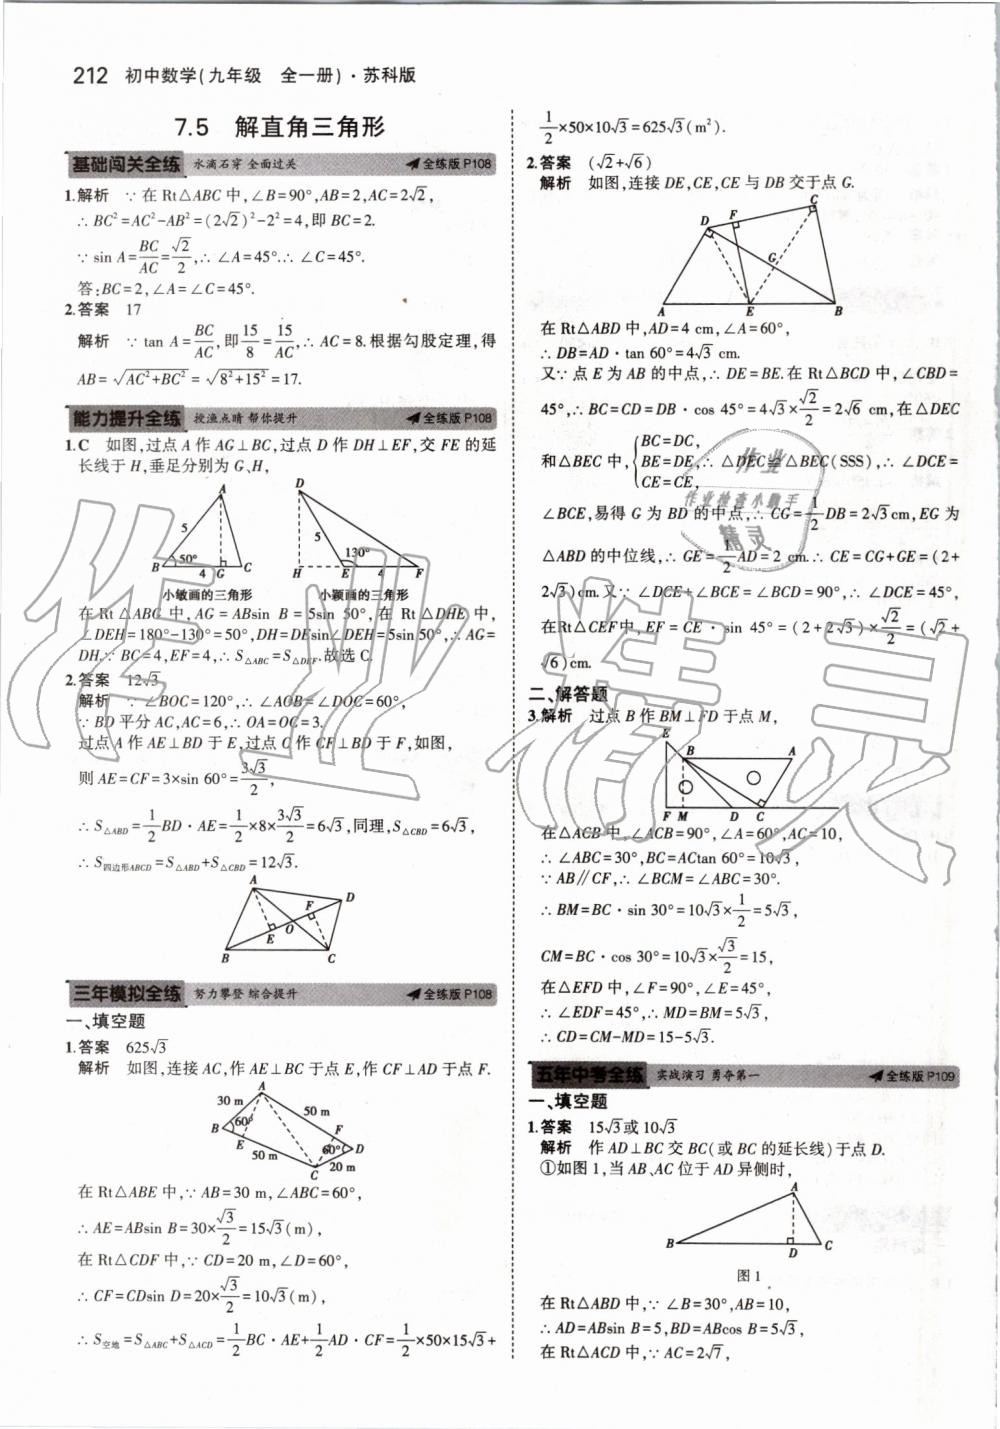 212 初中数学(九年级 全一册)·苏科版
7.5 解直角三角形
基础闯关全练 水滴石穿 全面过关 全练版 P108
1.解析 ∵在 Rt△ABC 中,∠B=90°,AB=2,AC=2√2,
∴BC²=AC²-AB²=(2√2)²-2²=4,即 BC=2.
∵sin A=BC/AC=√2/2,∴∠A=45°.∴∠C=45°.
答:BC=2,∠A=∠C=45°.
2.答案 17
解析 ∵tan A=BC/AC,即15/8=15/AC,∴AC=8.根据勾股定理,得
AB=√(AC²+BC²)=√(8²+15²)=17.
能力提升全练 授渔点睛 帮你提升 全练版 P108
1.C 如图,过点 A 作 AG⊥BC,过点 D 作 DH⊥EF,交 FE 的延
长线于 H,垂足分别为 G、H,
A 5 50° B 4 G C
D 5 130° H E 4 F
小敏画的三角形 小颖画的三角形
在 Rt△ABG 中,AG=ABsin B=5sin 50°,在 Rt△DHE 中,
∠DEH=180°-130°=50°,DH=DEsin∠DEH=5sin 50°,∴AG=
DH.∵BC=4,EF=4,∴S△ABC=S△DEF.故选 C.
2.答案 12√3
解析 ∵∠BOC=120°,∴∠AOB=∠DOC=60°,
∵BD 平分 AC,AC=6,∴OA=OC=3.
过点 A 作 AE⊥BD 于 E,过点 C 作 CF⊥BD 于 F,如图,
则 AE=CF=3×sin 60°=3√3/2,
∴S△ABD=1/2BD·AE=1/2×8×3√3/2=6√3,同理,S△CBD=6√3,
∴S四边形ABCD=S△ABD+S△CBD=12√3.
A F D E O B C
三年模拟全练 努力攀登 综合提升 全练版 P108
一、填空题
1.答案 625√3
解析 如图,连接 AC,作 AE⊥BC 于点 E,作 CF⊥AD 于点 F.
A 30 m 50 m B 60° E F 60° D 50 m 20 m C
在 Rt△ABE 中,∵AB=30 m,∠ABC=60°,
∴AE=ABsin B=30×√3/2=15√3(m),
在 Rt△CDF 中,∵CD=20 m,∠D=60°,
∴CF=CDsin D=20×√3/2=10√3(m),
∴S空地=S△ABC+S△ACD=1/2BC·AE+1/2AD·CF=1/2×50×15√3+
1/2×50×10√3=625√3(m²).
2.答案 (√2+√6)
解析 如图,连接 DE,CE,CE 与 DB 交于点 G.
C D F G A E B
在 Rt△ABD 中,AD=4 cm,∠A=60°,
∴DB=AD·tan 60°=4√3 cm.
又∵点 E 为 AB 的中点,∴DE=BE.在 Rt△BCD 中,∠CBD=
45°,∴BC=CD=DB·cos 45°=4√3×√2/2=2√6 cm,在△DEC
和△BEC 中,{BC=DC, BE=DE, CE=CE,∴△DEC≌△BEC(SSS),∴∠DCE=
∠BCE,易得 G 为 BD 的中点,∴CG=1/2DB=2√3 cm,EG 为
△ABD 的中位线,∴GE=1/2AD=2 cm.∴CE=CG+GE=(2+
2√3)cm.又∵∠DCE+∠BCE=∠BCD=90°,∴∠DCE=45°,
在Rt△CEF中,EF=CE·sin 45°=(2+2√3)×√2/2=(√2+
√6)cm.
二、解答题
3.解析 过点 B 作 BM⊥FD 于点 M,
E B A F M D C
在△ACB 中,∠ACB=90°,∠A=60°,AC=10,
∴∠ABC=30°,BC=ACtan 60°=10√3,
∵AB∥CF,∴∠BCM=∠ABC=30°.
∴BM=BC·sin 30°=10√3×1/2=5√3,
CM=BC·cos 30°=10√3×√3/2=15,
在△EFD 中,∠F=90°,∠E=45°,
∴∠EDF=45°,∴MD=BM=5√3,
∴CD=CM-MD=15-5√3.
五年中考全练 实战演习 勇夺第一 全练版 P109
一、填空题
1.答案 15√3或 10√3
解析 作 AD⊥BC 交 BC(或 BC 的延长线)于点 D.
①如图 1,当 AB、AC 位于 AD 异侧时,
A B D C
图 1
在 Rt△ABD 中,∵∠B=30°,AB=10,
∴AD=ABsin B=5,BD=ABcos B=5√3,
在 Rt△ACD 中,∵AC=2√7,
作业
作业检查小助手
精灵
作业精灵